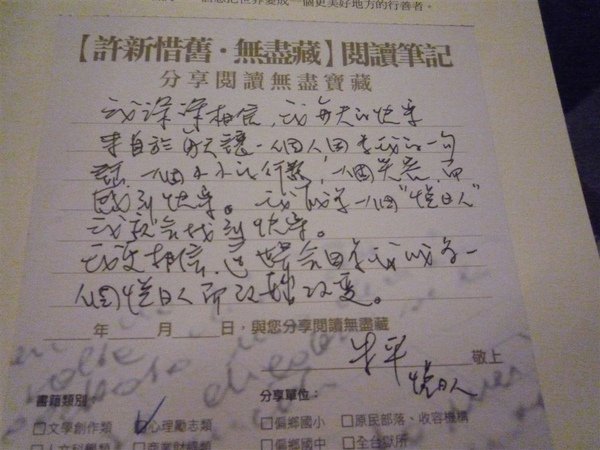 一個更美好地方的行善者。
【許新惜舊・無盡藏】閱讀筆記
分享閱讀無盡寶藏
我深深相信,我每天的快樂
來自於每天讓一個人因著我的一句
話,一個小小的行為,一個笑容,而
感到快樂。我 一個" "
我就會找到快樂。
我更相信,這世界會因著我成為一
個 人而 改變。
年 月 日,與您分享閱讀無盡藏
敬上
書籍類別:
分享單位:
□文學創作類 □心理勵志類
□偏鄉國小 □原民部落、收容機構
□人文科學類 □商業財經類
□偏鄉國中 □全台獄所